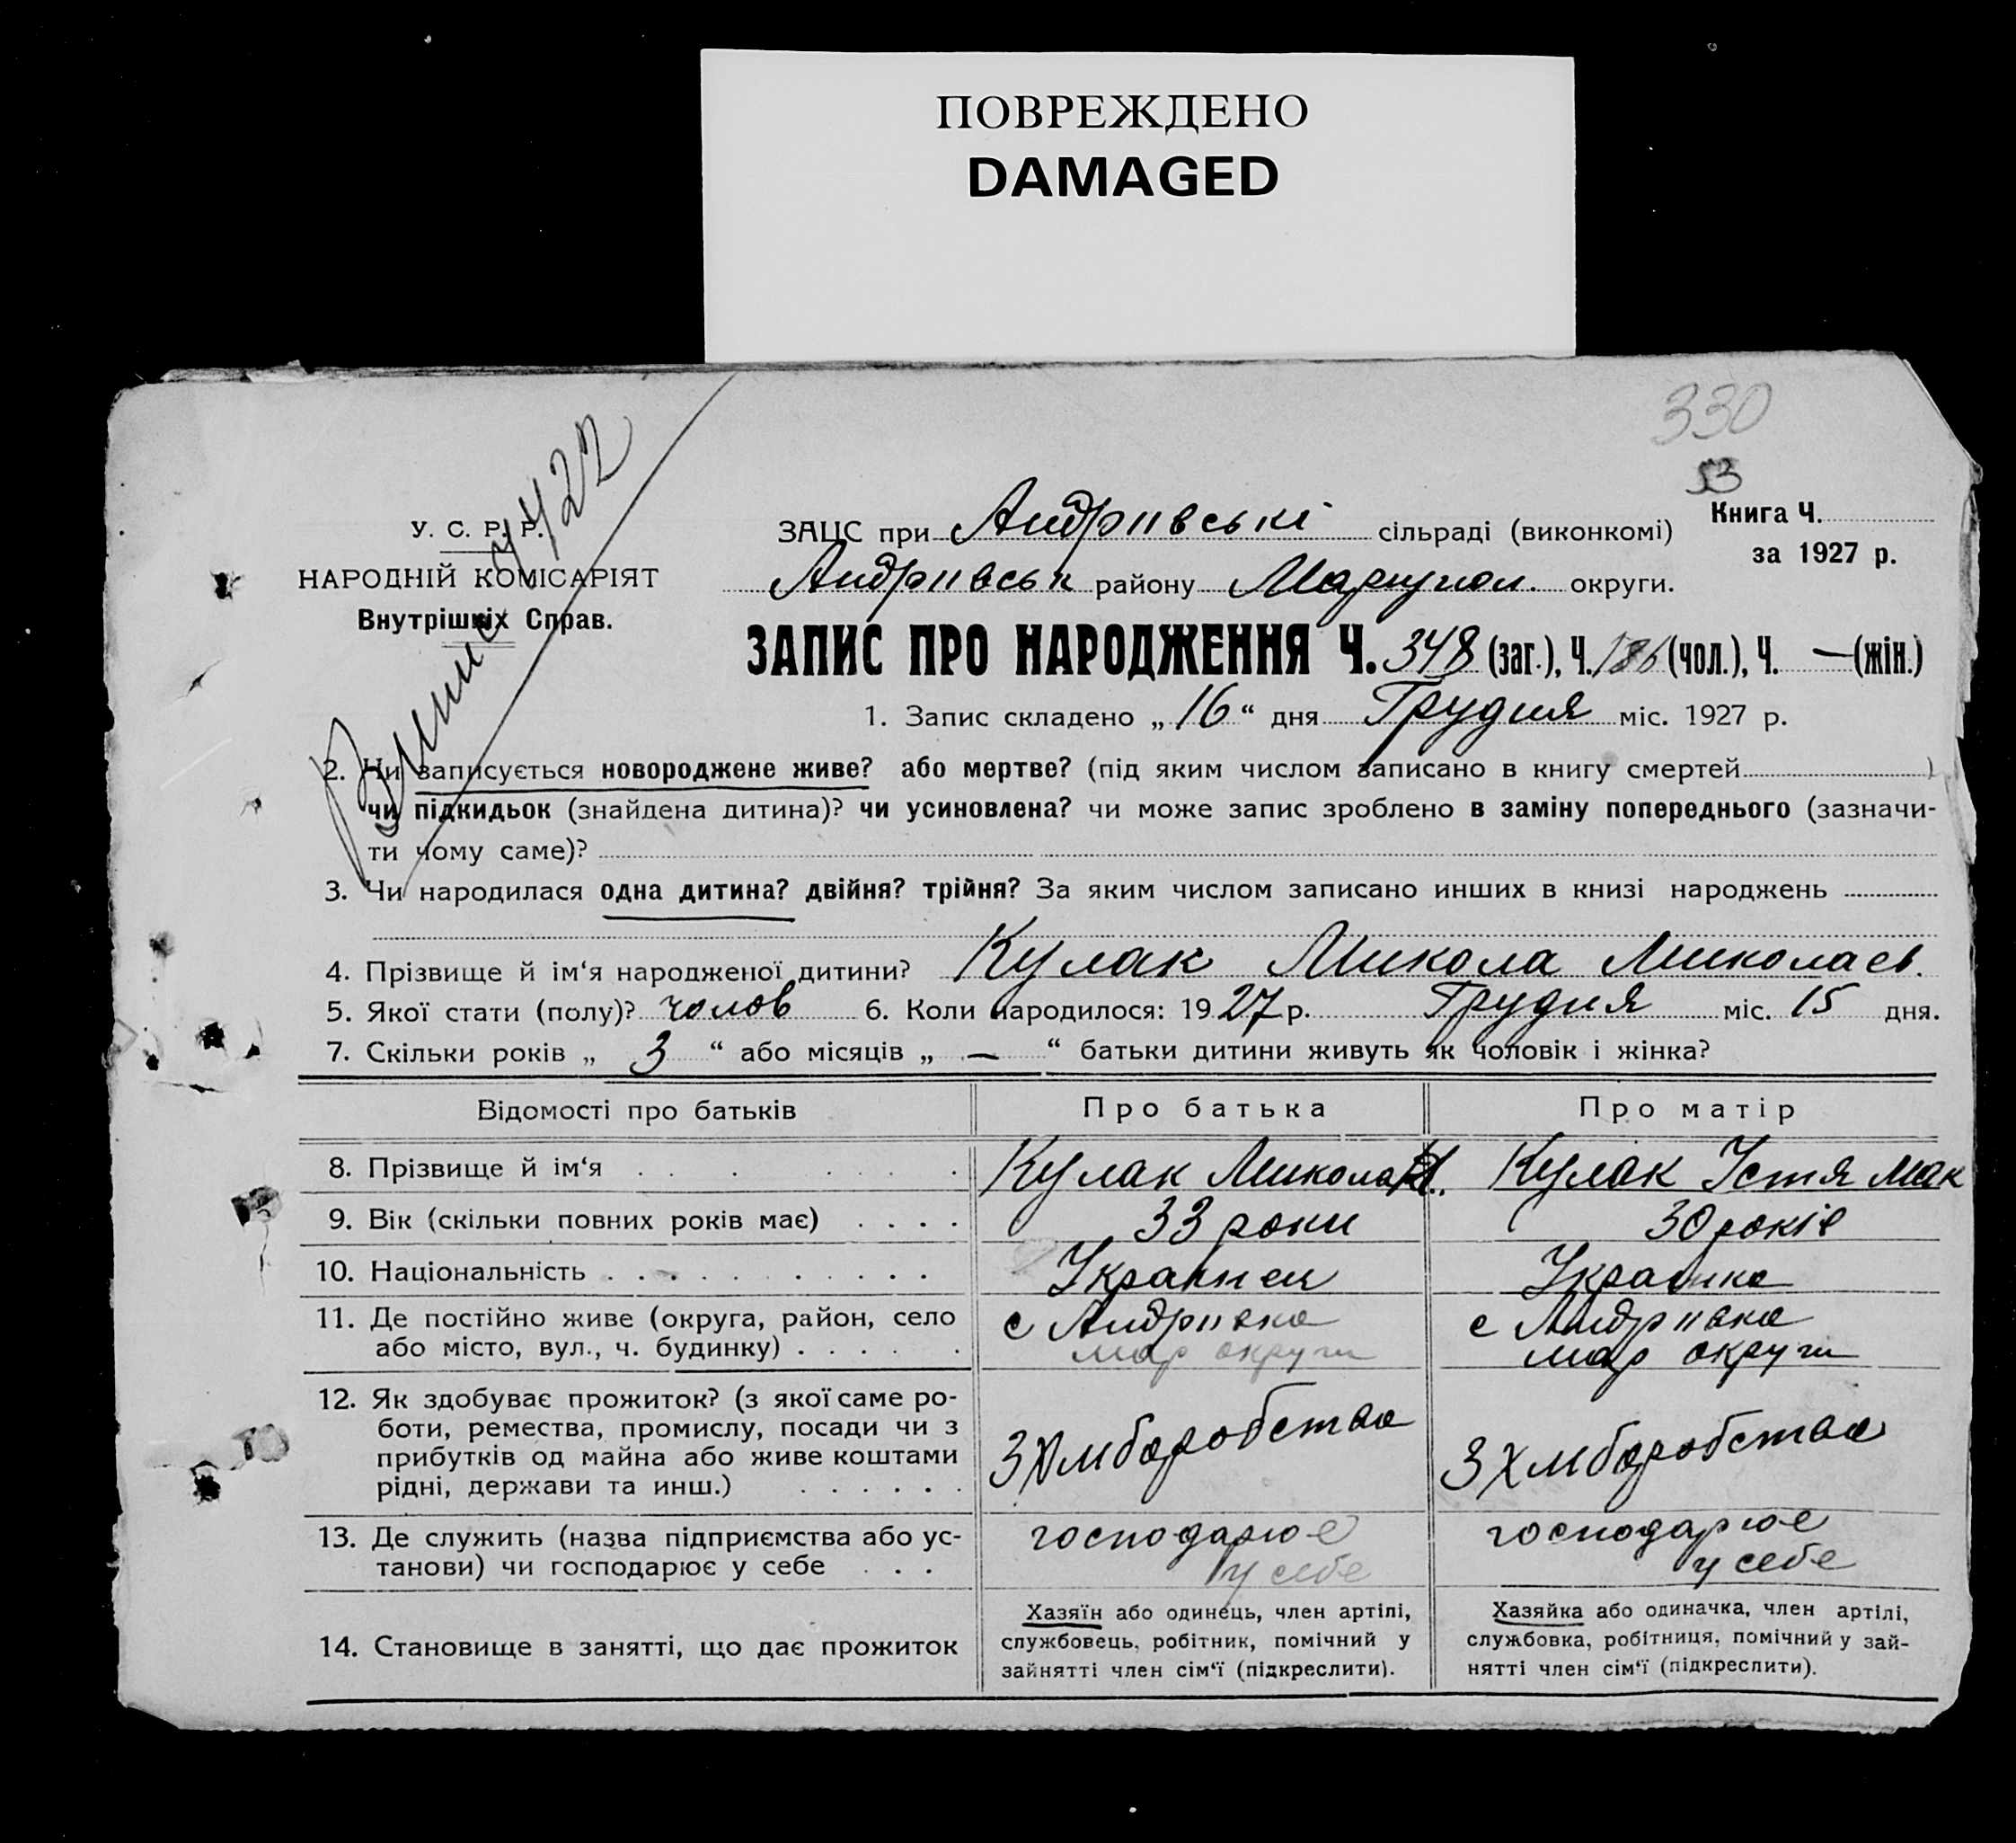 ПОВРЕЖДЕНО
DAMAGED
330
53
У. С. Р. Р.
НАРОДНІЙ КОМІСАРІЯТ
Внутрішніх Справ.
ЗАЦС при Андріівські сільраді (виконкомі)
Книга Ч.
за 1927 р.
Андріівськ району Маріупол. округи.
ЗАПИС ПРО НАРОДЖЕННЯ Ч. 348 (заг.), Ч. 186 (чол.), Ч. — (жін.)
1. Запис складено „16“ дня Грудня міс. 1927 р.
2. Чи записується новороджене живе? або мертве? (під яким числом записано в книгу смертей )
чи підкидьок (знайдена дитина)? чи усиновлена? чи може запис зроблено в заміну попереднього (зазначи-
ти чому саме)?
3. Чи народилася одна дитина? двійня? трійня? За яким числом записано инших в книзі народжень
4. Прізвище й ім‘я народженої дитини? Кулак Микола Миколаєв.
5. Якої стати (полу)? чолов 6. Коли народилося: 1927 р. Грудня міс. 15 дня.
7. Скільки років „ 3 “ або місяців „ — “ батьки дитини живуть як чоловік і жінка?
Відомості про батьків Про батька Про матір
8. Прізвище й ім‘я Кулак Микола Кулак Устя Мак
9. Вік (скільки повних років має) 33 роки 30 років
10. Національність Украинец Украинка
11. Де постійно живе (округа, район, село
або місто, вул., ч. будинку)
с Андріівка
мар округи
с Андріівка
мар округи
12. Як здобуває прожиток? (з якої саме ро-
боти, ремества, промислу, посади чи з
прибутків од майна або живе коштами
рідні, держави та инш.)
З Хліборобства
З Хліборобства
13. Де служить (назва підприємства або ус-
танови) чи господарює у себе
господарює
у себе
господарює
у себе
14. Становище в занятті, що дає прожиток
Хазяїн або одинець, член артілі,
службовець, робітник, помічний у
зайнятті член сім‘ї (підкреслити).
Хазяйка або одиначка, член артілі,
службовка, робітниця, помічний у зай-
нятті член сім‘ї (підкреслити).